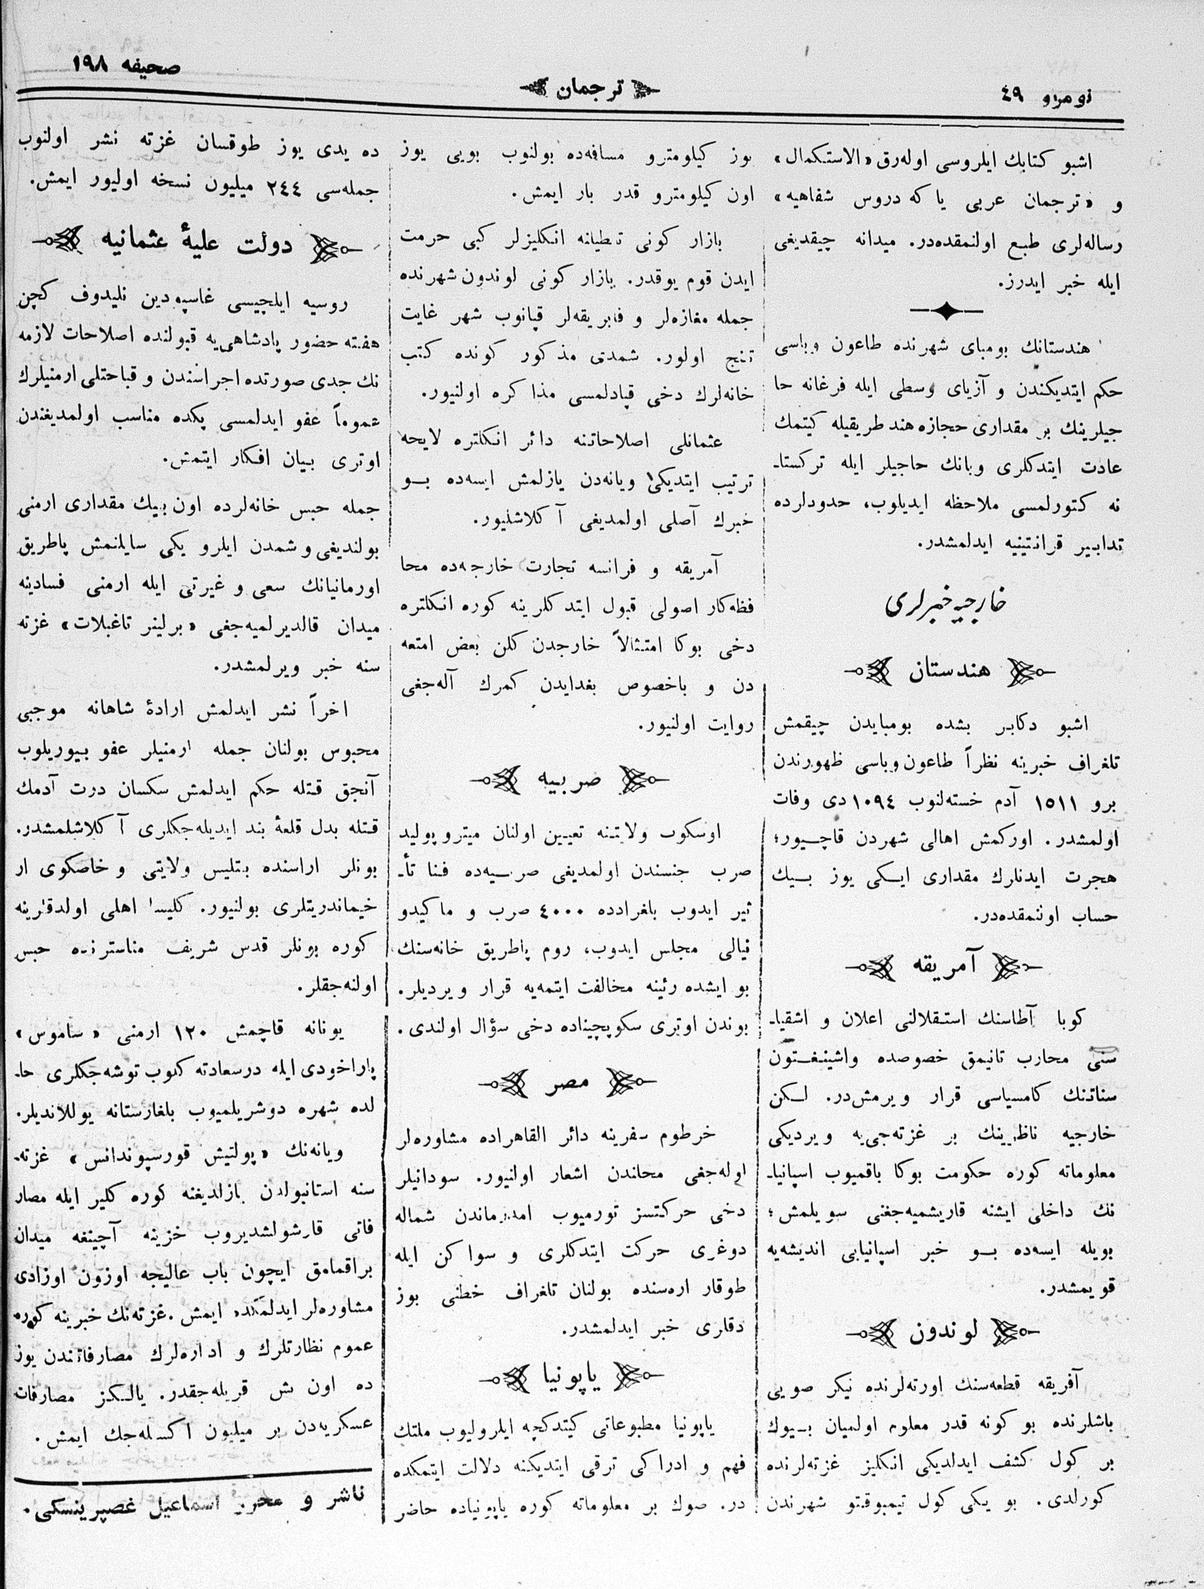 نومرو ٤٩
ترجمان
صحیفه ١٩٨
اشبو كتابك ایلروسی اوله‌رق «الاستكمال»
و «ترجمان عربی یا كه دروس شفاهیه»
رساله‌لری طبع اولنمقده‌در. میدانه چیقدیغی
ایله خبر ایدرز.
هندستانك بومبای شهرنده طاعون وباسی
حكم ایتدیكندن و آزیای وسطی ایله فرغانه حا
جیلرینك بر مقداری حجازه هند طریقیله كیتمك
عادت ایتدكلری وبانك حاجیلر ایله تركستا۔
نه كتورلمسی ملاحظه ایدیلوب، حدودلرده
تدابیر قرانتینیه ایدلمشدر.
خارجیه خبرلری
هندستان
اشبو دكابر بشده بومبایدن چیقمش
تلغراف خبرینه نظراً طاعون وباسی ظهورندن
برو ١٥١١ آدم خسته‌لنوب ١٠٩٤ دی وفات
اولمشدر. اوركمش اهالی شهردن قاچیور؛
هجرت ایدنلرك مقداری ایكی یوز بیك
حساب اولنمقده‌در.
آمریقه
كوبا آطاسنك استقلالنی اعلان و اشقیا۔
سنی محارب تانیمق خصوصده واشینغتون
سناتنك كامسیاسی قرار ویرمش‌در. لكن
خارجیه ناظرینك بر غزته‌جی‌یه ویردیكی
معلوماته كوره حكومت بوكا باقمیوب اسپانیا۔
نك داخلی ایشنه قاریشمیه‌جغنی سویلمش؛
بویله ایسه‌ده بو خبر اسپانیایی اندیشه‌یه
قویمشدر.
لوندون
آفریقه قطعه‌سنك اورته‌لرنده نیكر صویی
باشلرنده بو كونه قدر معلوم اولمیان بیوك
بر كول كشف ایدلدیكی انكلیز غزته‌لرنده
كورلدی. بو یكی كول تیمبوقتو شهرندن
یوز كیلومترو مسافه‌ده بولنوب بویی یوز
اون كیلومترو قدر بار ایمش.
بازار كونی تعطیلنه انكلیزلر كبی حرمت
ایدن قوم یوقدر. بازار كونی لوندون شهرنده
جمله مغازه‌لر و فابریقه‌لر قپانوب شهر غایت
تنج اولور. شمدی مذكور كونده كتب
خانه‌لرك دخی قپادلمسی مذاكره اولنیور.
عثمانلی اصلاحاتنه دائر انكلتره لایحه
ترتیب ایتدیكی ویانه‌دن یازلمش ایسه‌ده بو
خبرك آصلی اولمدیغی آكلاشلیور.
آمریقه و فرانسه تجارت خارجه‌ده محا
فظه‌كار اصولی قبول ایتدكلرینه كوره انكلتره
دخی بوكا امتثالاً خارجدن كلن بعض امتعه
دن و باخصوص بغدایدن كمرك آله‌جغی
روایت اولنیور.
صربیه
اوسكوب ولایتنه تعیین اولنان میتروپولید
صرب جنسندن اولمدیغی صربیه‌ده فنا تأ۔
ثیر ایدوب بلغرادده ٤٠٠٠ صرب و ماكیدو
نیالی مجلس ایدوب، روم پاطریق خانه‌سنك
بو ایشده رئینه مخالفت ایتمه‌یه قرار ویردیلر.
بوندن اوتری سكوپچیناده دخی سؤال اولندی.
مصر
خرطوم سفرینه دائر القاهراده مشاوره‌لر
اوله‌جغی محلندن اشعار اولنیور. سودانیلر
دخی حركتسز تورمیوب امدرماندن شماله
دوغری حركت ایتدكلری و سواكن ایله
طوقار اره‌سنده بولنان تلغراف خطنی بوز
دقلری خبر ایدلمشدر.
یاپونیا
یاپونیا مطبوعاتی كیتدكچه ایلرولیوب ملتك
فهم و ادراكی ترقی ایتدیكنه دلالت ایتمكده
در. صوك بر معلوماته كوره یاپونیاده حاضر
ده یدی یوز طوقسان غزته نشر اولنوب
جمله‌سی ٢٤٤ میلیون نسخه اولیور ایمش.
دولت علیهٔ عثمانیه
روسیه ایلچیسی غاسپودین نلیدوف كچن
هفته حضور پادشاهی‌یه قبولنده اصلاحات لازمه
نك جدی صورتده اجراسندن و قباحتلی ارمنیلرك
عموماً عفو ایدلمسی پكده مناسب اولمدیغندن
اوتری بیان افكار ایتمش.
جمله حبس خانه‌لرده اون بیك مقداری ارمنی
بولندیغی و شمدن ایلرو یكی سایلنمش پاطریق
اورمانیانك سعی و غیرتی ایله ارمنی فسادینه
میدان قالدیرلمیه‌جغی «برلینر تاغبلات» غزته
سنه خبر ویرلمشدر.
اخراً نشر ایدلمش ارادهٔ شاهانه موجبی
محبوس بولنان جمله ارمنیلر عفو بیوریلوب
آنجق قتله حكم ایدلمش سكسان درت آدمك
قتله بدل قلعهٔ بند ایدیله‌جكلری آكلاشلمشدر.
بونلر اراسنده بتلیس ولایتی و خاصكوی ار
خیماندریتلری بولنیور. كلیسا اهلی اولدقلرینه
كوره بونلر قدس شریف مناسترنده حبس
اولنه‌جقلر.
یونانه قاچمش ١٢٠ ارمنی «ساموس»
پاراخودی ایله درسعادته كلوب توشه‌جكلری حا۔
لده شهره دوشریلمیوب بلغارستانه یوللاندیلر.
ویانه‌نك «پولتیش قورسپوندانس» غزته۔
سنه استانبولدن یازلدیغنه كوره كلیر ایله مصار
فاتی قارشولشدیروب خزینه آچیغنه میدان
براقمامق ایچون باب عالیجه اوزون اوزادی
مشاوره‌لر ایدلمكده ایمش. غزته‌نك خبرینه كوره
عموم نظارتلرك و اداره‌لرك مصارفاتندن یوز
ده اون بش قریله‌جقدر. یالكز مصارفات
عسكریه‌دن بر میلیون اكسله‌جك ایمش.
ناشر و محرر اسماعیل غصپرینسكی.